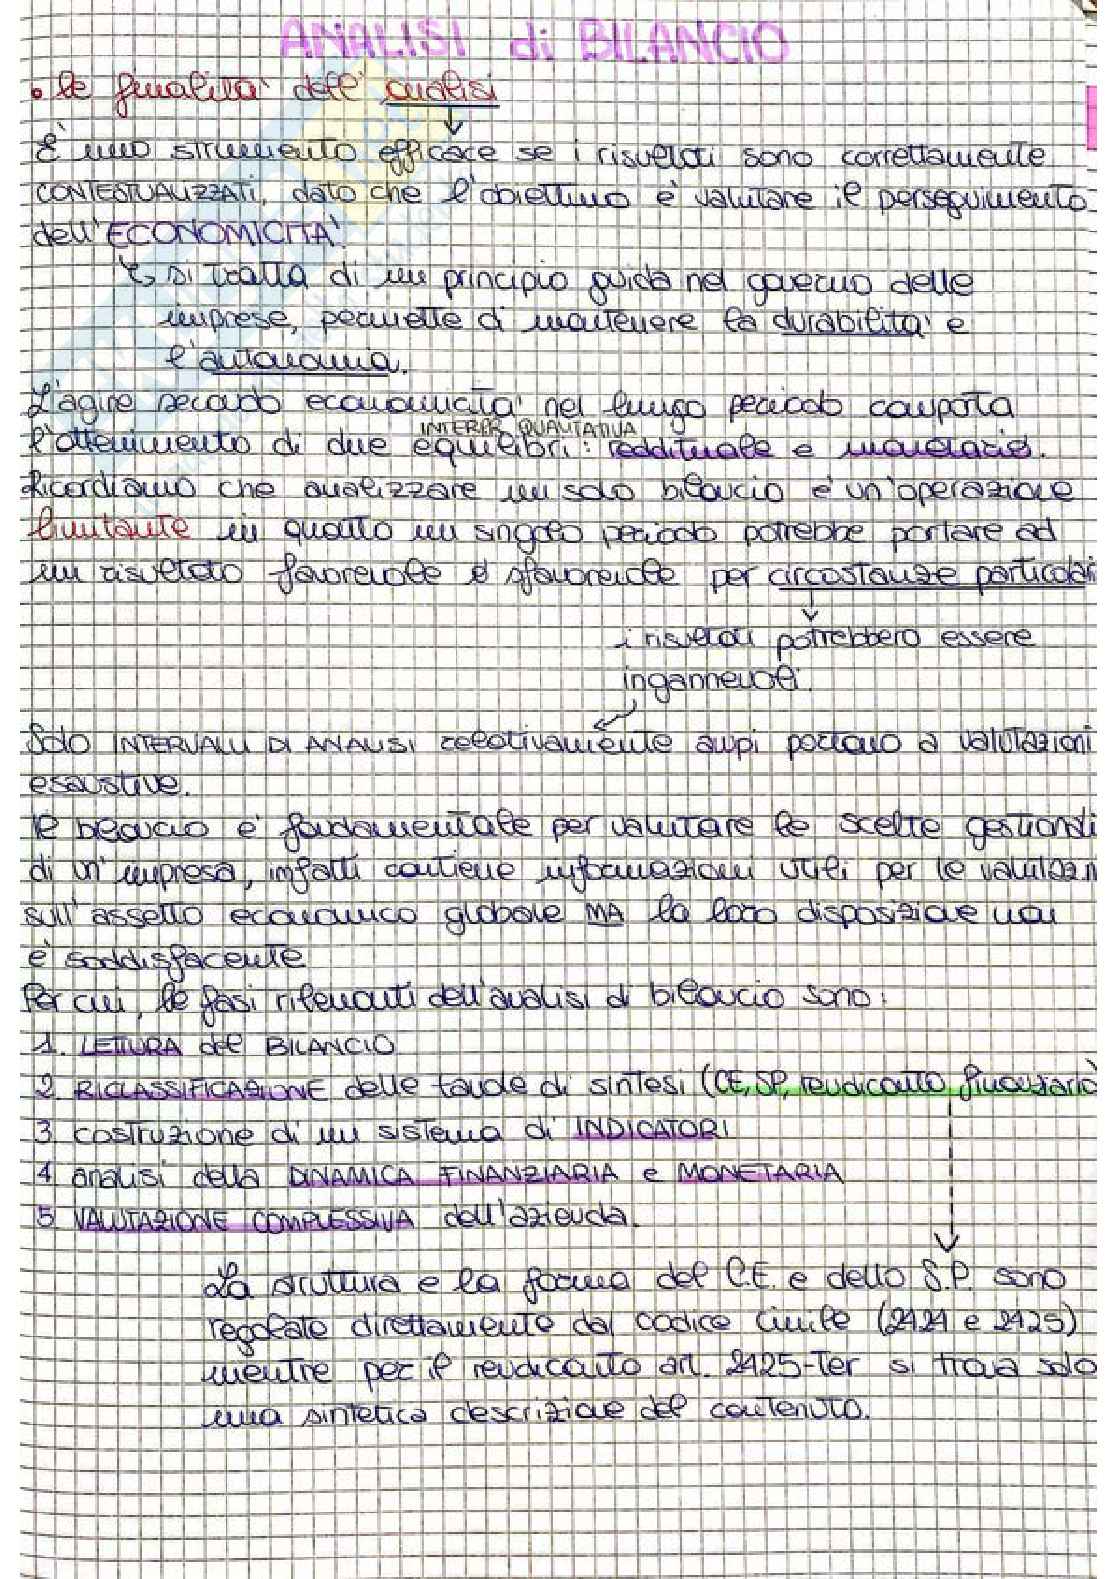 ANALISI di BILANCIO
• le finalità dell'analisi
È uno strumento efficace se i risultati sono correttamente
CONTESTUALIZZATI, dato che l'obiettivo è valutare il perseguimento
dell'ECONOMICITA'
↳ si tratta di un principio guida nel governo delle
imprese, permette di mantenere la durabilità e
l'autonomia.
L'agire secondo economicità nel lungo periodo comporta
INTERPR. QUALITATIVA
l'ottenimento di due equilibri: reddituale e monetario.
Ricordiamo che analizzare un solo bilancio è un'operazione
limitante in quanto un singolo periodo potrebbe portare ad
un risultato favorevole o sfavorevole per circostanze particolari
i risultati potrebbero essere
ingannevoli.
Solo INTERVALLI DI ANALISI relativamente ampi portano a valutazioni
esaustive.
Il bilancio è fondamentale per valutare le scelte gestionali
di un'impresa, infatti contiene informazioni utili per le valutazioni
sull'assetto economico globale MA la loro disposizione non
è soddisfacente
Per cui, le fasi rilevanti dell'analisi di bilancio sono:
1. LETTURA del BILANCIO
2. RICLASSIFICAZIONE delle tavole di sintesi (CE, SP, rendiconto finanziario)
3 costruzione di un sistema di INDICATORI
4 analisi della DINAMICA FINANZIARIA e MONETARIA
5 VALUTAZIONE COMPLESSIVA dell'azienda.
La struttura e la forma del C.E. e dello S.P. sono
regolate direttamente dal codice civile (2424 e 2425)
mentre per il rendiconto art. 2425-Ter si trova solo
una sintetica descrizione del contenuto.